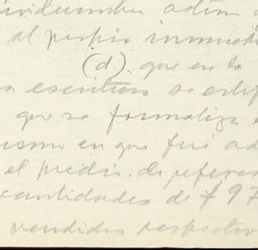 al propio inmueb
(d). que en la
escritura se estip
que se formaliza
mismo en que fué ad
el predio de referen
cantidades de $ 97
vendidos respectiv